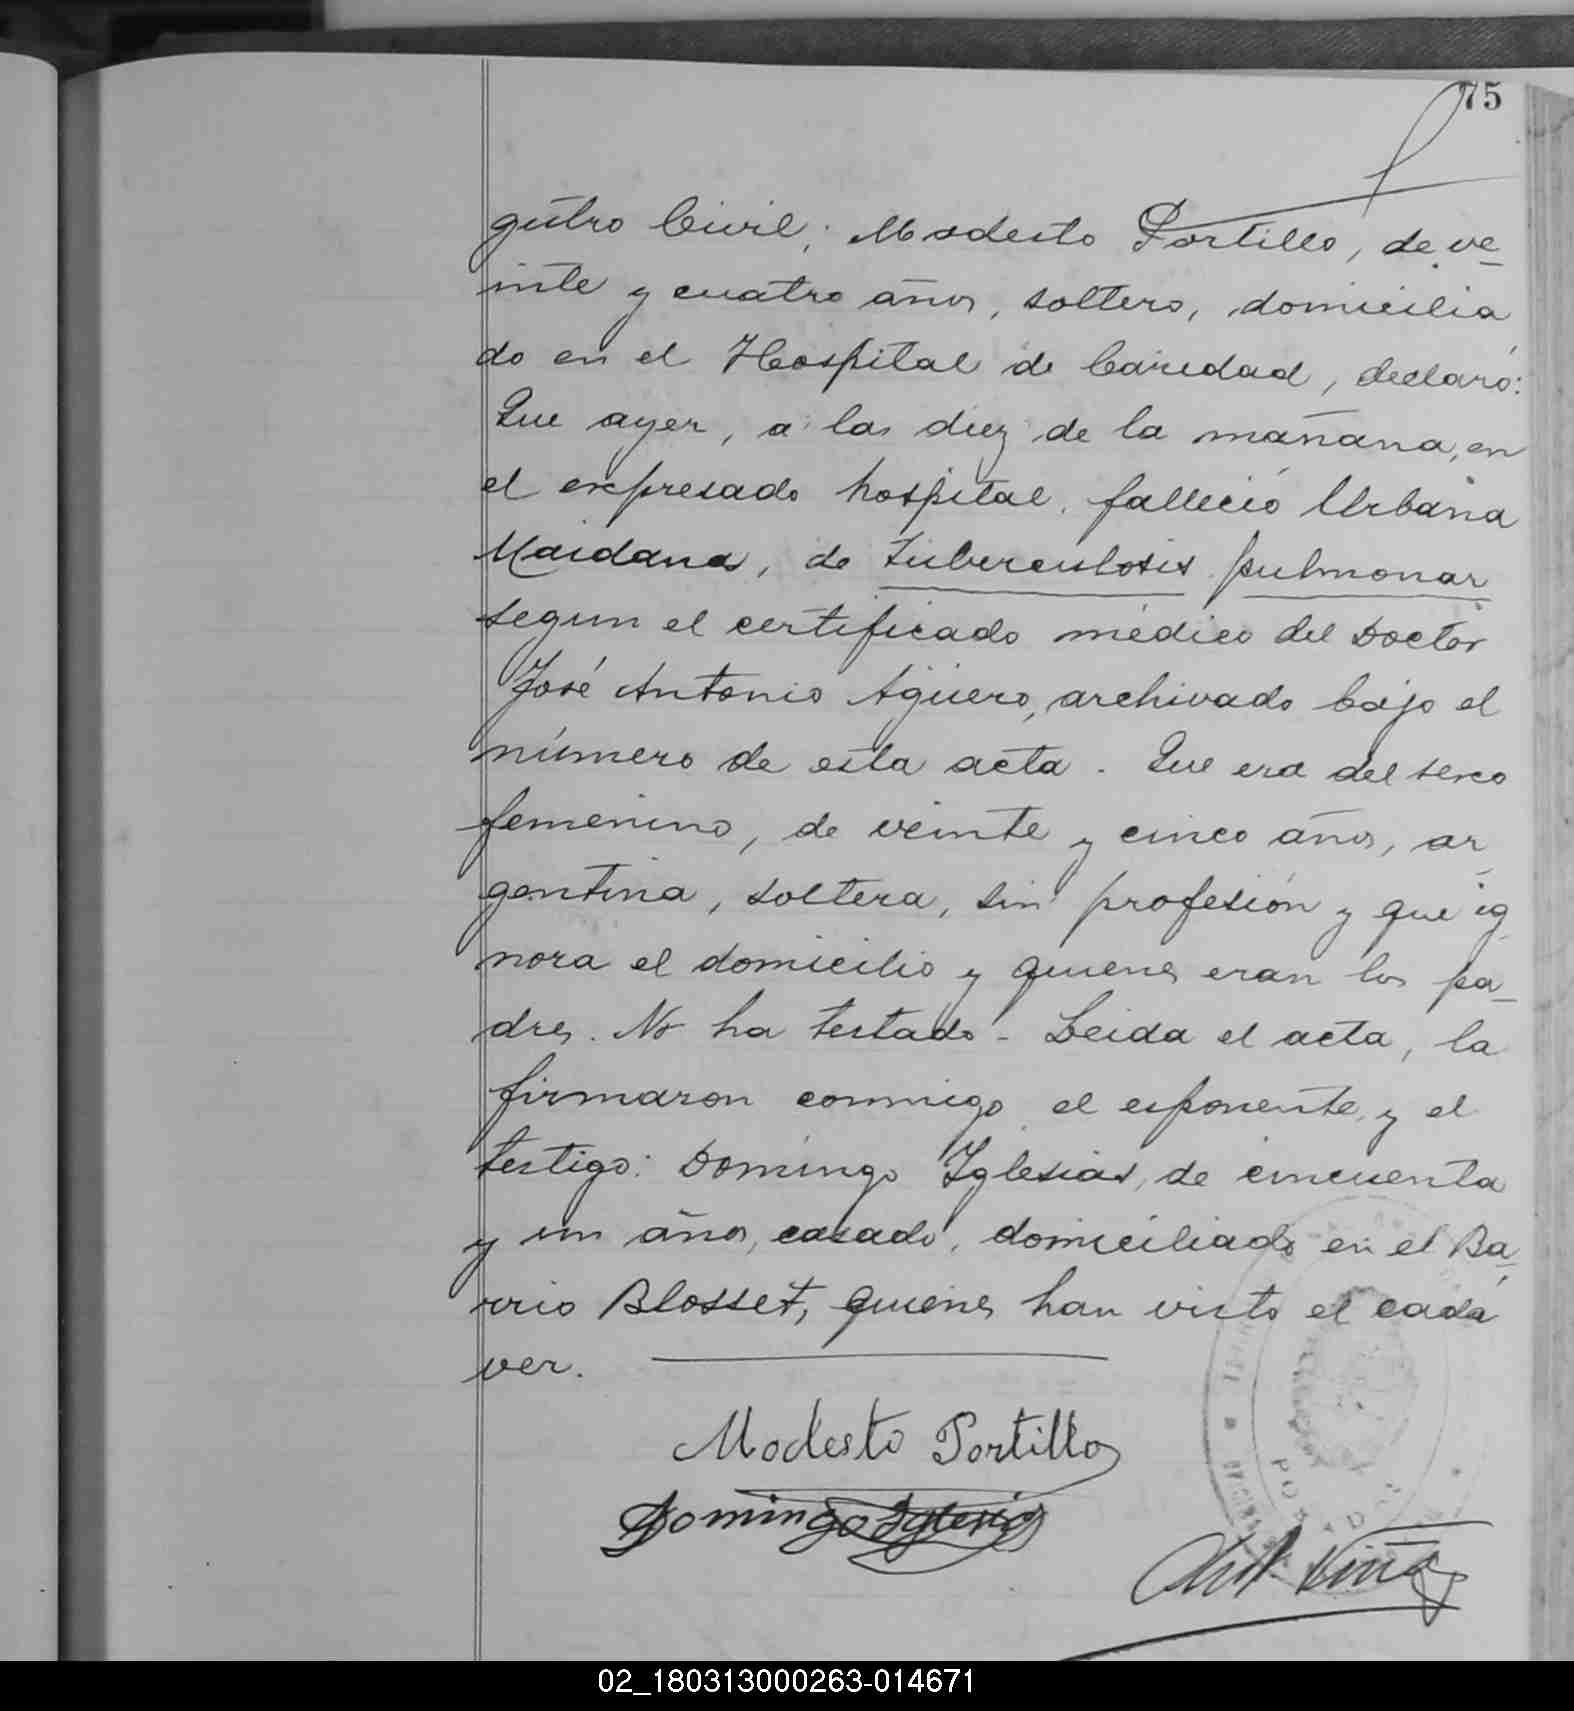 75
gistro Civil; Modesto Portillo, de ve
inte y cuatro años, soltero, domicilia
do en el Hospital de Caridad, declaró:
Que ayer, a las diez de la mañana, en
el expresado hospital, falleció Urbana
Maidana, de tuberculosis pulmonar
segun el certificado médico del Doctor
José Antonio Agüero, archivado bajo el
número de esta acta. Que era del sexo
femenino, de veinte y cinco años, ar
gentina, soltera, sin profesión y que ig
nora el domicilio y quienes eran los pa-
dres. No ha testado - Leida el acta, la
firmaron conmigo el exponente, y el
testigo: Domingo Iglesias, de cincuenta
y un años, casado, domiciliado en el Ba
rrio Blosset, quienes han visto el cadá
ver.
Modesto Portillo
Domingo Iglesias
02_180313000263-014671